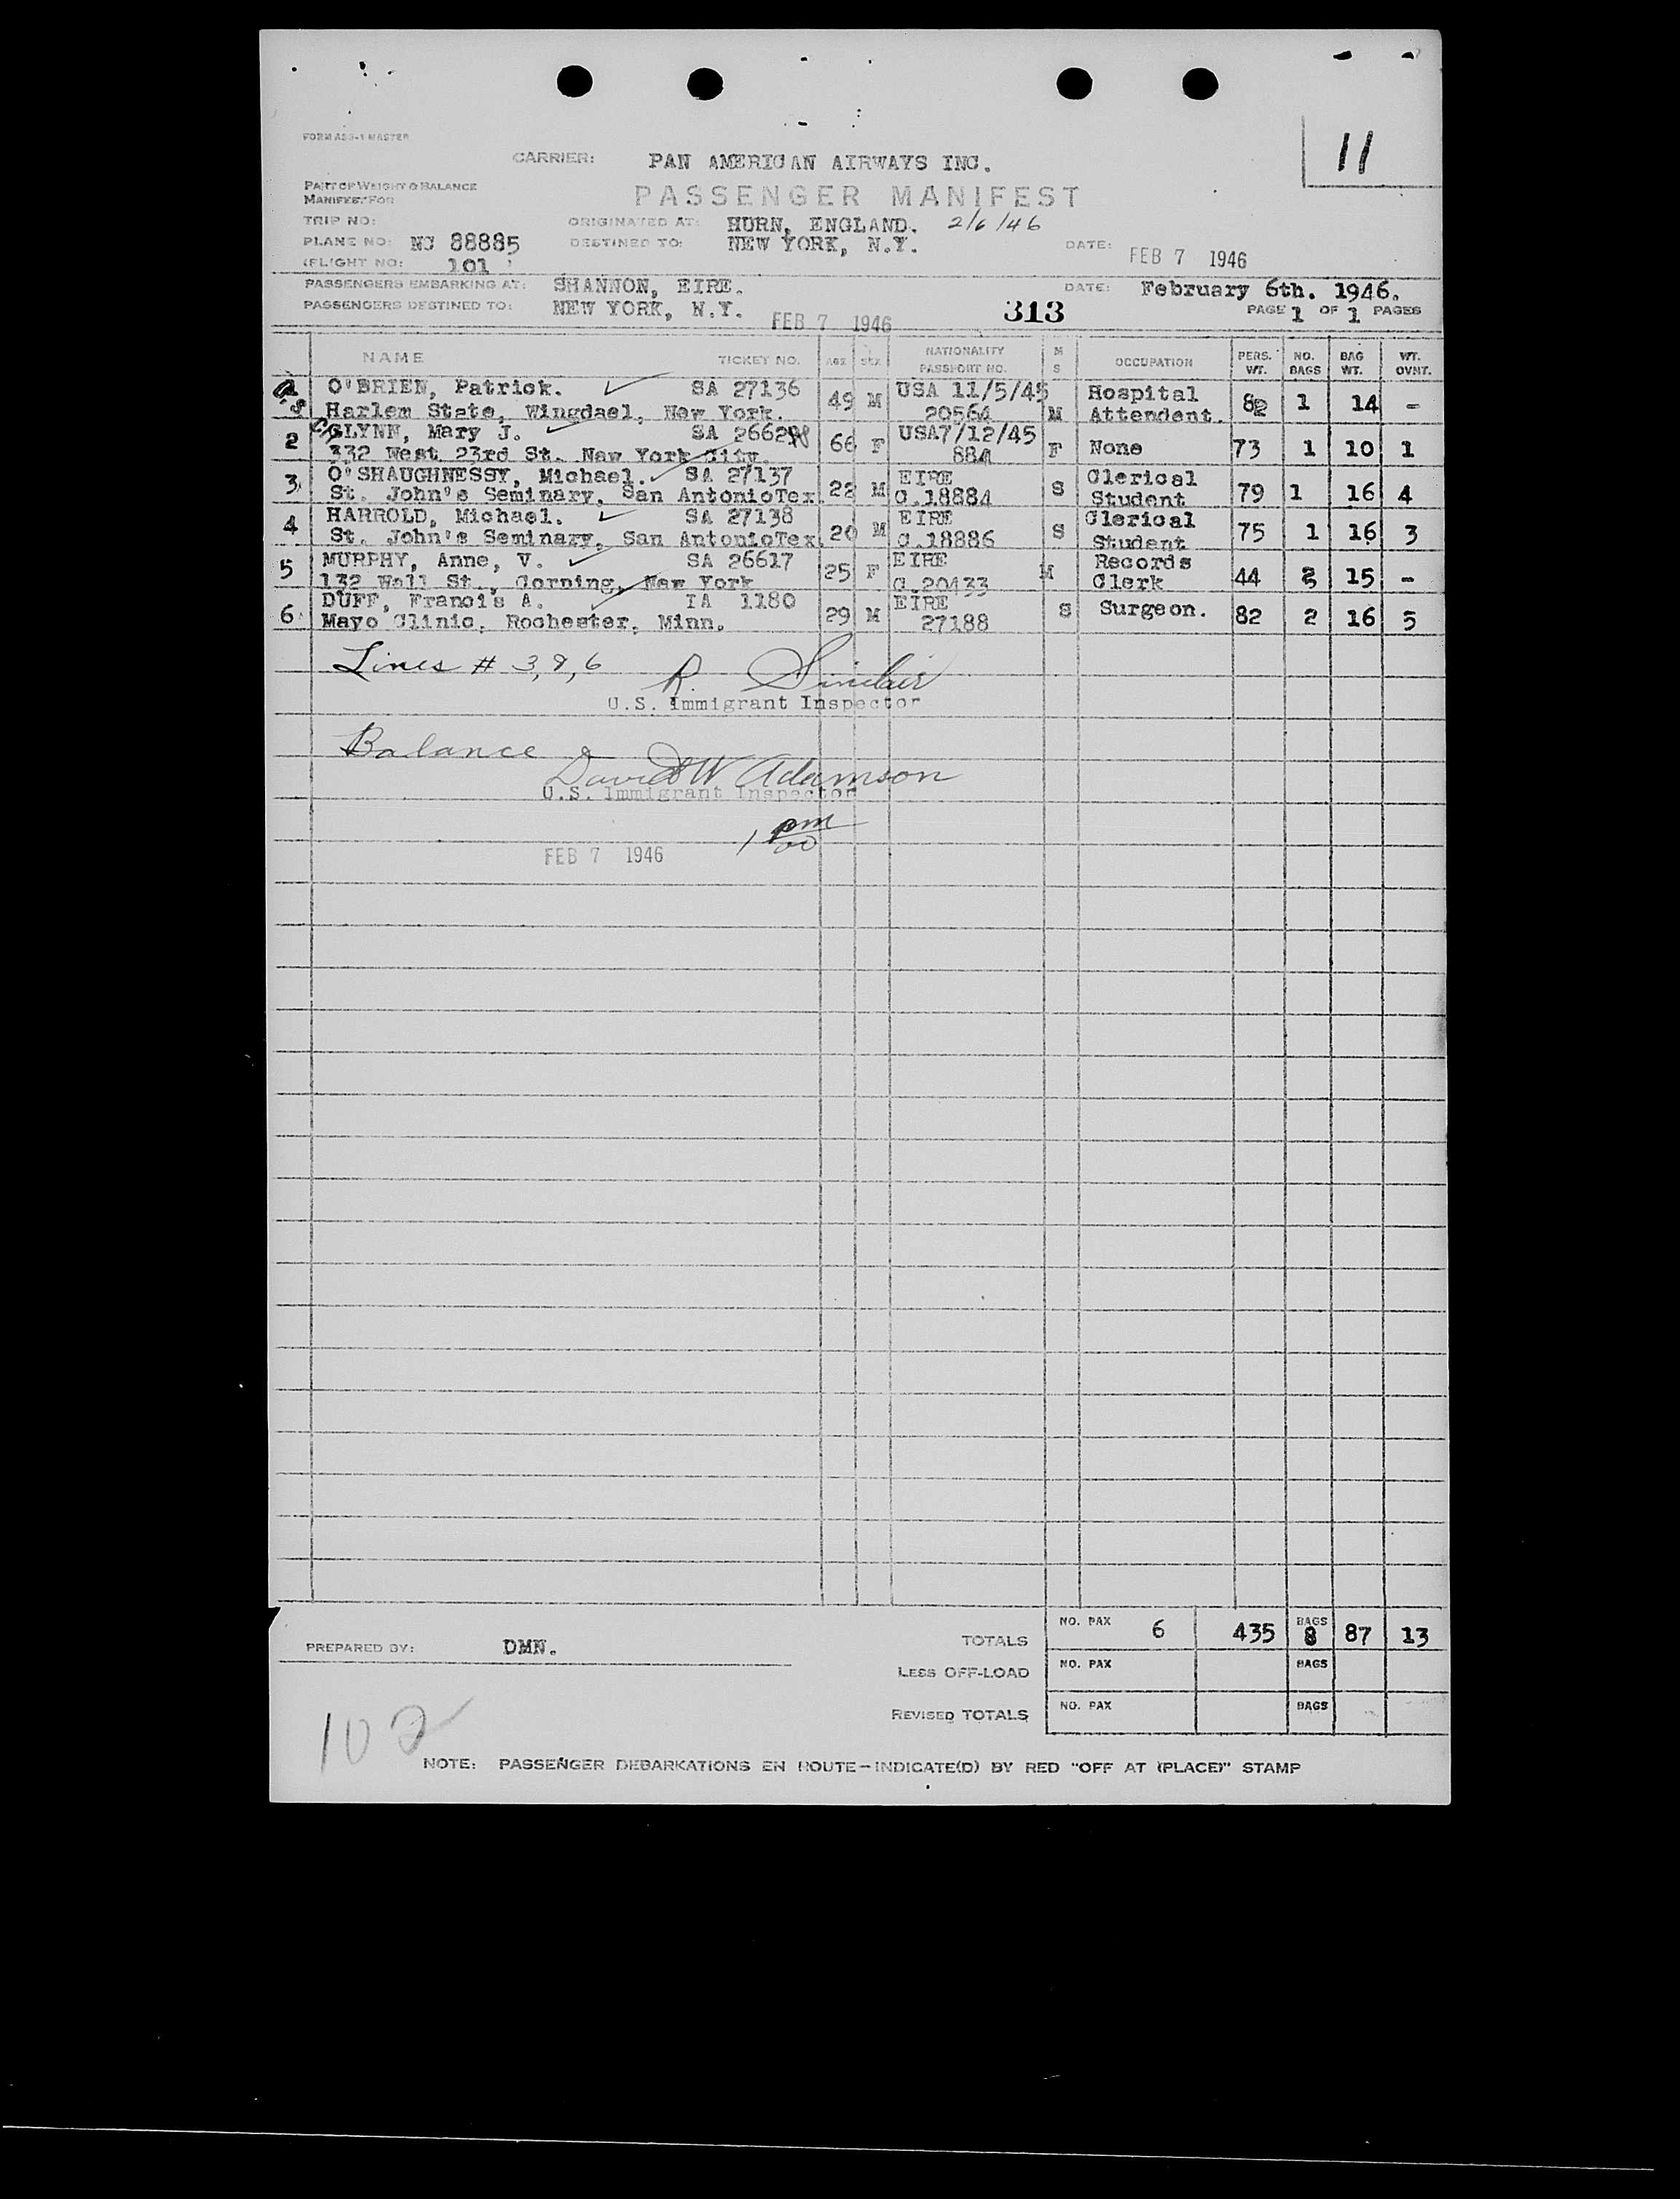 FORM ABS-1 MASTER
11
CARRIER: PAN AMERICAN AIRWAYS INC.
PART OF WEIGHT & BALANCE
MANIFEST FOR
PASSENGER MANIFEST
TRIP NO:
ORIGINATED AT: HURN, ENGLAND. 2/6/46
PLANE NO: NC 88885
DESTINED TO: NEW YORK, N.Y.
DATE: FEB 7 1946
(FLIGHT NO: 101
PASSENGERS EMBARKING AT: SHANNON, EIRE.
DATE: February 6th. 1946.
PASSENGERS DESTINED TO: NEW YORK, N.Y. FEB 7 1946
313
PAGE 1 OF 1 PAGES
NAME TICKET NO. AGE SEX NATIONALITY PASSPORT NO. M S OCCUPATION PERS. WT. NO. BAGS BAG WT. WT. OVHT.
O'BRIEN, Patrick. SA 27136 49 M USA 11/5/45 Hospital 82 1 14 -
Harlem State, Wingdael, New York. 20564 M Attendent.
2 GLYNN, Mary J. SA 66 F USA7/12/45 F None 73 1 10 1
332 West 23rd St. New York City. 884
3 O'SHAUGHNESSY, Michael. SA 27137 22 M EIRE S Clerical 79 1 16 4
St. John's Seminary, San AntonioTex. C.18884 Student
4 HARROLD, Michael. SA 27138 20 M EIRE S Clerical 75 1 16 3
St. John's Seminary, San AntonioTex. C.18886 Student
5 MURPHY, Anne, V. SA 26617 25 F EIRE M Records 44 2 15 -
132 Wall St., Corning, New York C.20433 Clerk
6 DUFF, Francis A. IA 1180 29 M EIRE S Surgeon. 82 2 16 5
Mayo Clinic, Rochester, Minn. 27188
Lines # 3, 8, 6
R. Sinclair
U.S. Immigrant Inspector
Balance
David W Adamson
U.S. Immigrant Inspector
1 pm 00
FEB 7 1946
TOTALS NO. PAX 6 435 BAGS 8 87 13
PREPARED BY: DMN.
LESS OFF-LOAD NO. PAX BAGS
REVISED TOTALS NO. PAX BAGS
102
NOTE: PASSENGER DEBARKATIONS EN ROUTE-INDICATE(D) BY RED "OFF AT (PLACE)" STAMP